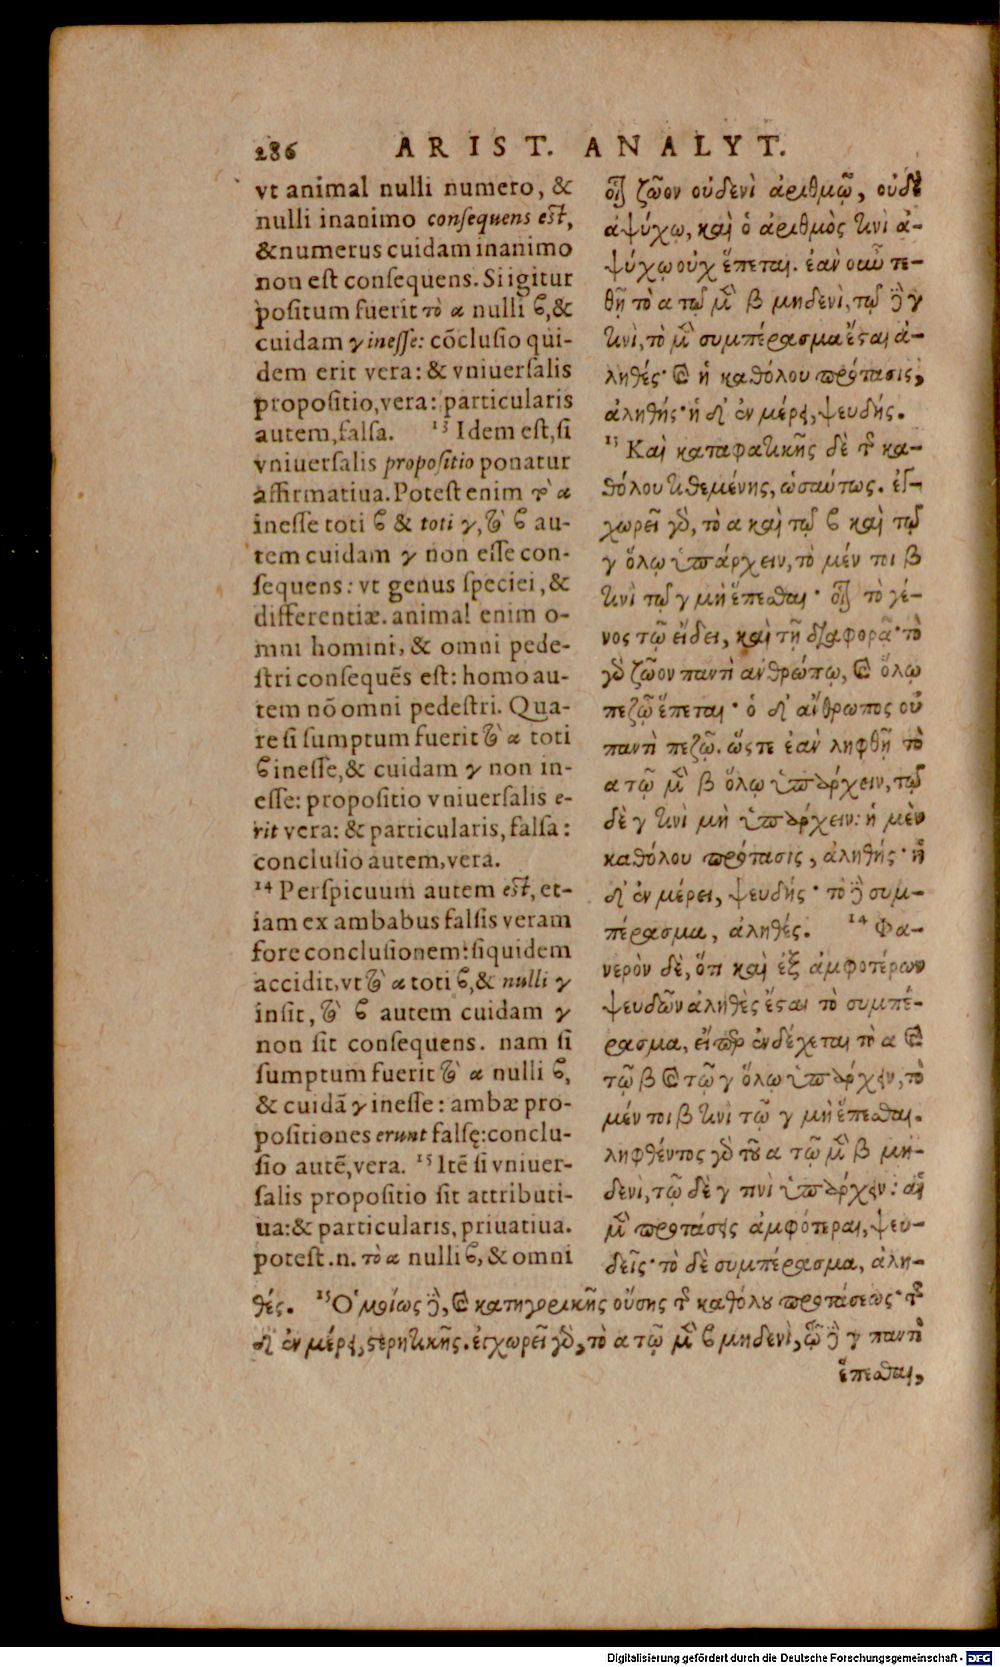 286 ARIST. ANALYT.
vt animal nulli numero, &
nulli inanimo consequens est,
& numerus cuidam inanimo
non est consequens. Si igitur
positum fuerit τὸ α nulli ϐ, &
cuidam γ inesse: cōclusio qui-
dem erit vera: & vniuersalis
propositio, vera: particularis
autem, falsa. 13 Idem est, si
vniuersalis propositio ponatur
affirmatiua. Potest enim τὸ α
inesse toti ϐ & toti γ, τὸ ϐ au-
tem cuidam γ non esse con-
sequens: vt genus speciei, &
differentiæ. animal enim o-
mni homini, & omni pede-
stri consequēs est: homo au-
tem nō omni pedestri. Qua-
re si sumptum fuerit τὸ α toti
ϐ inesse, & cuidam γ non in-
esse: propositio vniuersalis e-
rit vera: & particularis, falsa:
conclusio autem, vera.
14 Perspicuum autem est, et-
iam ex ambabus falsis veram
fore conclusionem: siquidem
accidit, vt τὸ α toti ϐ, & nulli γ
insit, τὸ ϐ autem cuidam γ
non sit consequens. nam si
sumptum fuerit τὸ α nulli ϐ,
& cuidā γ inesse: ambæ pro-
positiones erunt falsę: conclu-
sio autē, vera. 15 Itē si vniuer-
salis propositio sit attributi-
ua: & particularis, priuatiua.
potest .n. τὸ α nulli ϐ, & omni
οἷον ζῶον οὐδενὶ ἀριθμῷ, οὐδὲ
ἀψύχῳ, καὶ ὁ ἀριθμὸς τινὶ ἀ-
ψύχῳ οὐχ ἕπεται. ἐὰν οὖν τε-
θῇ τὸ α τῷ μὲν β μηδενὶ, τῷ δὲ γ
τινὶ, τὸ μὲν συμπέρασμα ἔσται ἀ-
ληθές· καὶ ἡ καθόλου πρότασις,
ἀληθής· ἡ δ' ἐν μέρει, ψευδής.
13 Καὶ καταφατικῆς δὲ τῆς κα-
θόλου τιθεμένης, ὡσαύτως. ἐγ-
χωρεῖ γὸ, τὸ α καὶ τῷ ϐ καὶ τῷ
γ ὅλῳ ὑπάρχειν, τὸ μέν τοι β
τινὶ τῷ γ μὴ ἕπεσθαι· οἷον τὸ γέ-
νος τῷ εἴδει, καὶ τῇ διαφορᾷ· τὸ
γὸ ζῶον παντὶ ἀνθρώπῳ, καὶ ὅλῳ
πεζῷ ἕπεται· ὁ δ' ἄνθρωπος οὐ
παντὶ πεζῷ. ὥςτε ἐὰν ληφθῇ τὸ
α τῷ μὲν β ὅλῳ ὑπάρχειν, τῷ
δὲ γ τινὶ μὴ ὑπάρχειν: ἡ μὲν
καθόλου πρότασις, ἀληθής· ἡ
δ' ἐν μέρει, ψευδής· τὸ δὲ συμ-
πέρασμα, ἀληθές. 14 Φα-
νερὸν δὲ, ὅτι καὶ ἐξ ἀμφοτέρων
ψευδῶν ἀληθὲς ἔσται τὸ συμπέ-
ρασμα, εἴπερ ἐνδέχεται τὸ α καὶ
τῷ β καὶ τῷ γ ὅλῳ ὑπάρχειν, τὸ
μέν τοι β τινὶ τῷ γ μὴ ἕπεσθαι.
ληφθέντος γὸ τοῦ α τῷ μὲν β μη-
δενὶ, τῷ δὲ γ τινὶ ὑπάρχειν: αἱ
μὲν προτάσεις ἀμφότεραι, ψευ-
δεῖς· τὸ δὲ συμπέρασμα, ἀλη-
θές. 15 Ὁμοίως δὲ, καὶ κατηγορικῆς οὔσης τῆς καθόλου προτάσεως· τῆς
δ' ἐν μέρει, στερητικῆς. ἐγχωρεῖ γὸ, τὸ α τῷ μὲν ϐ μηδενὶ, τῷ δὲ γ παντὶ
ἕπεσθαι,
Digitalisierung gefördert durch die Deutsche Forschungsgemeinschaft - DFG